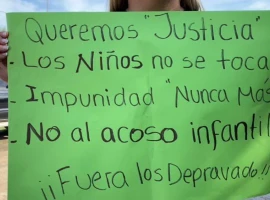 Queremos "Justicia"
- Los Niños no se toca
- Impunidad "Nunca Mas
- No al acoso infantil
¡¡Fuera los Depravado!!